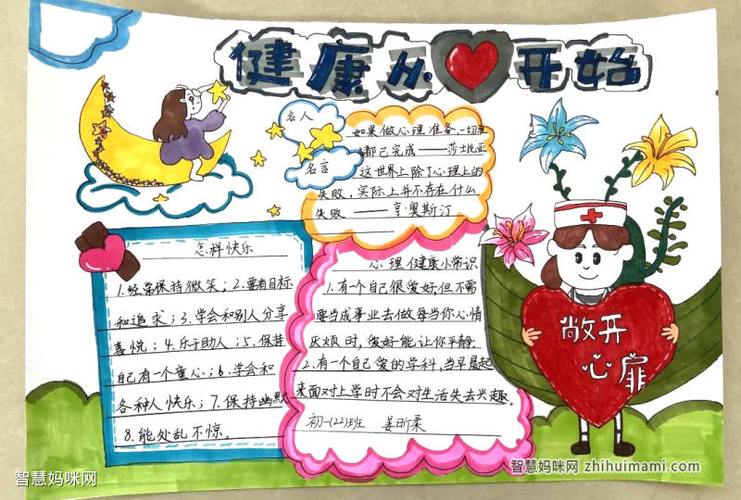 健康从开始
名人
名言
如果做心理准备,一切准
都已完成——莎士比亚
这世界上除了心理上的
失败,实际上并不存在什么
失败 —— 亨·奥斯汀
怎样快乐
1.经常保持微笑;2.要有目标
和追求;3.学会和别人分享
喜悦;4.乐于助人;5.保持
自己有一个童心;6.学会和
各种人快乐;7.保持幽默
8.能处乱不惊。
心理健康小常识
1.有个自己很爱好但不需
要当成事业去做每当你心情
厌烦时,爱好能让你平静
2.有一个自己爱的学科,当早晨起
来面对上学时不会对生活失去兴趣。
初一(22)班 姜昕柔
敞开
心扉
智慧妈咪网
智慧妈咪网 zhihuimami.com